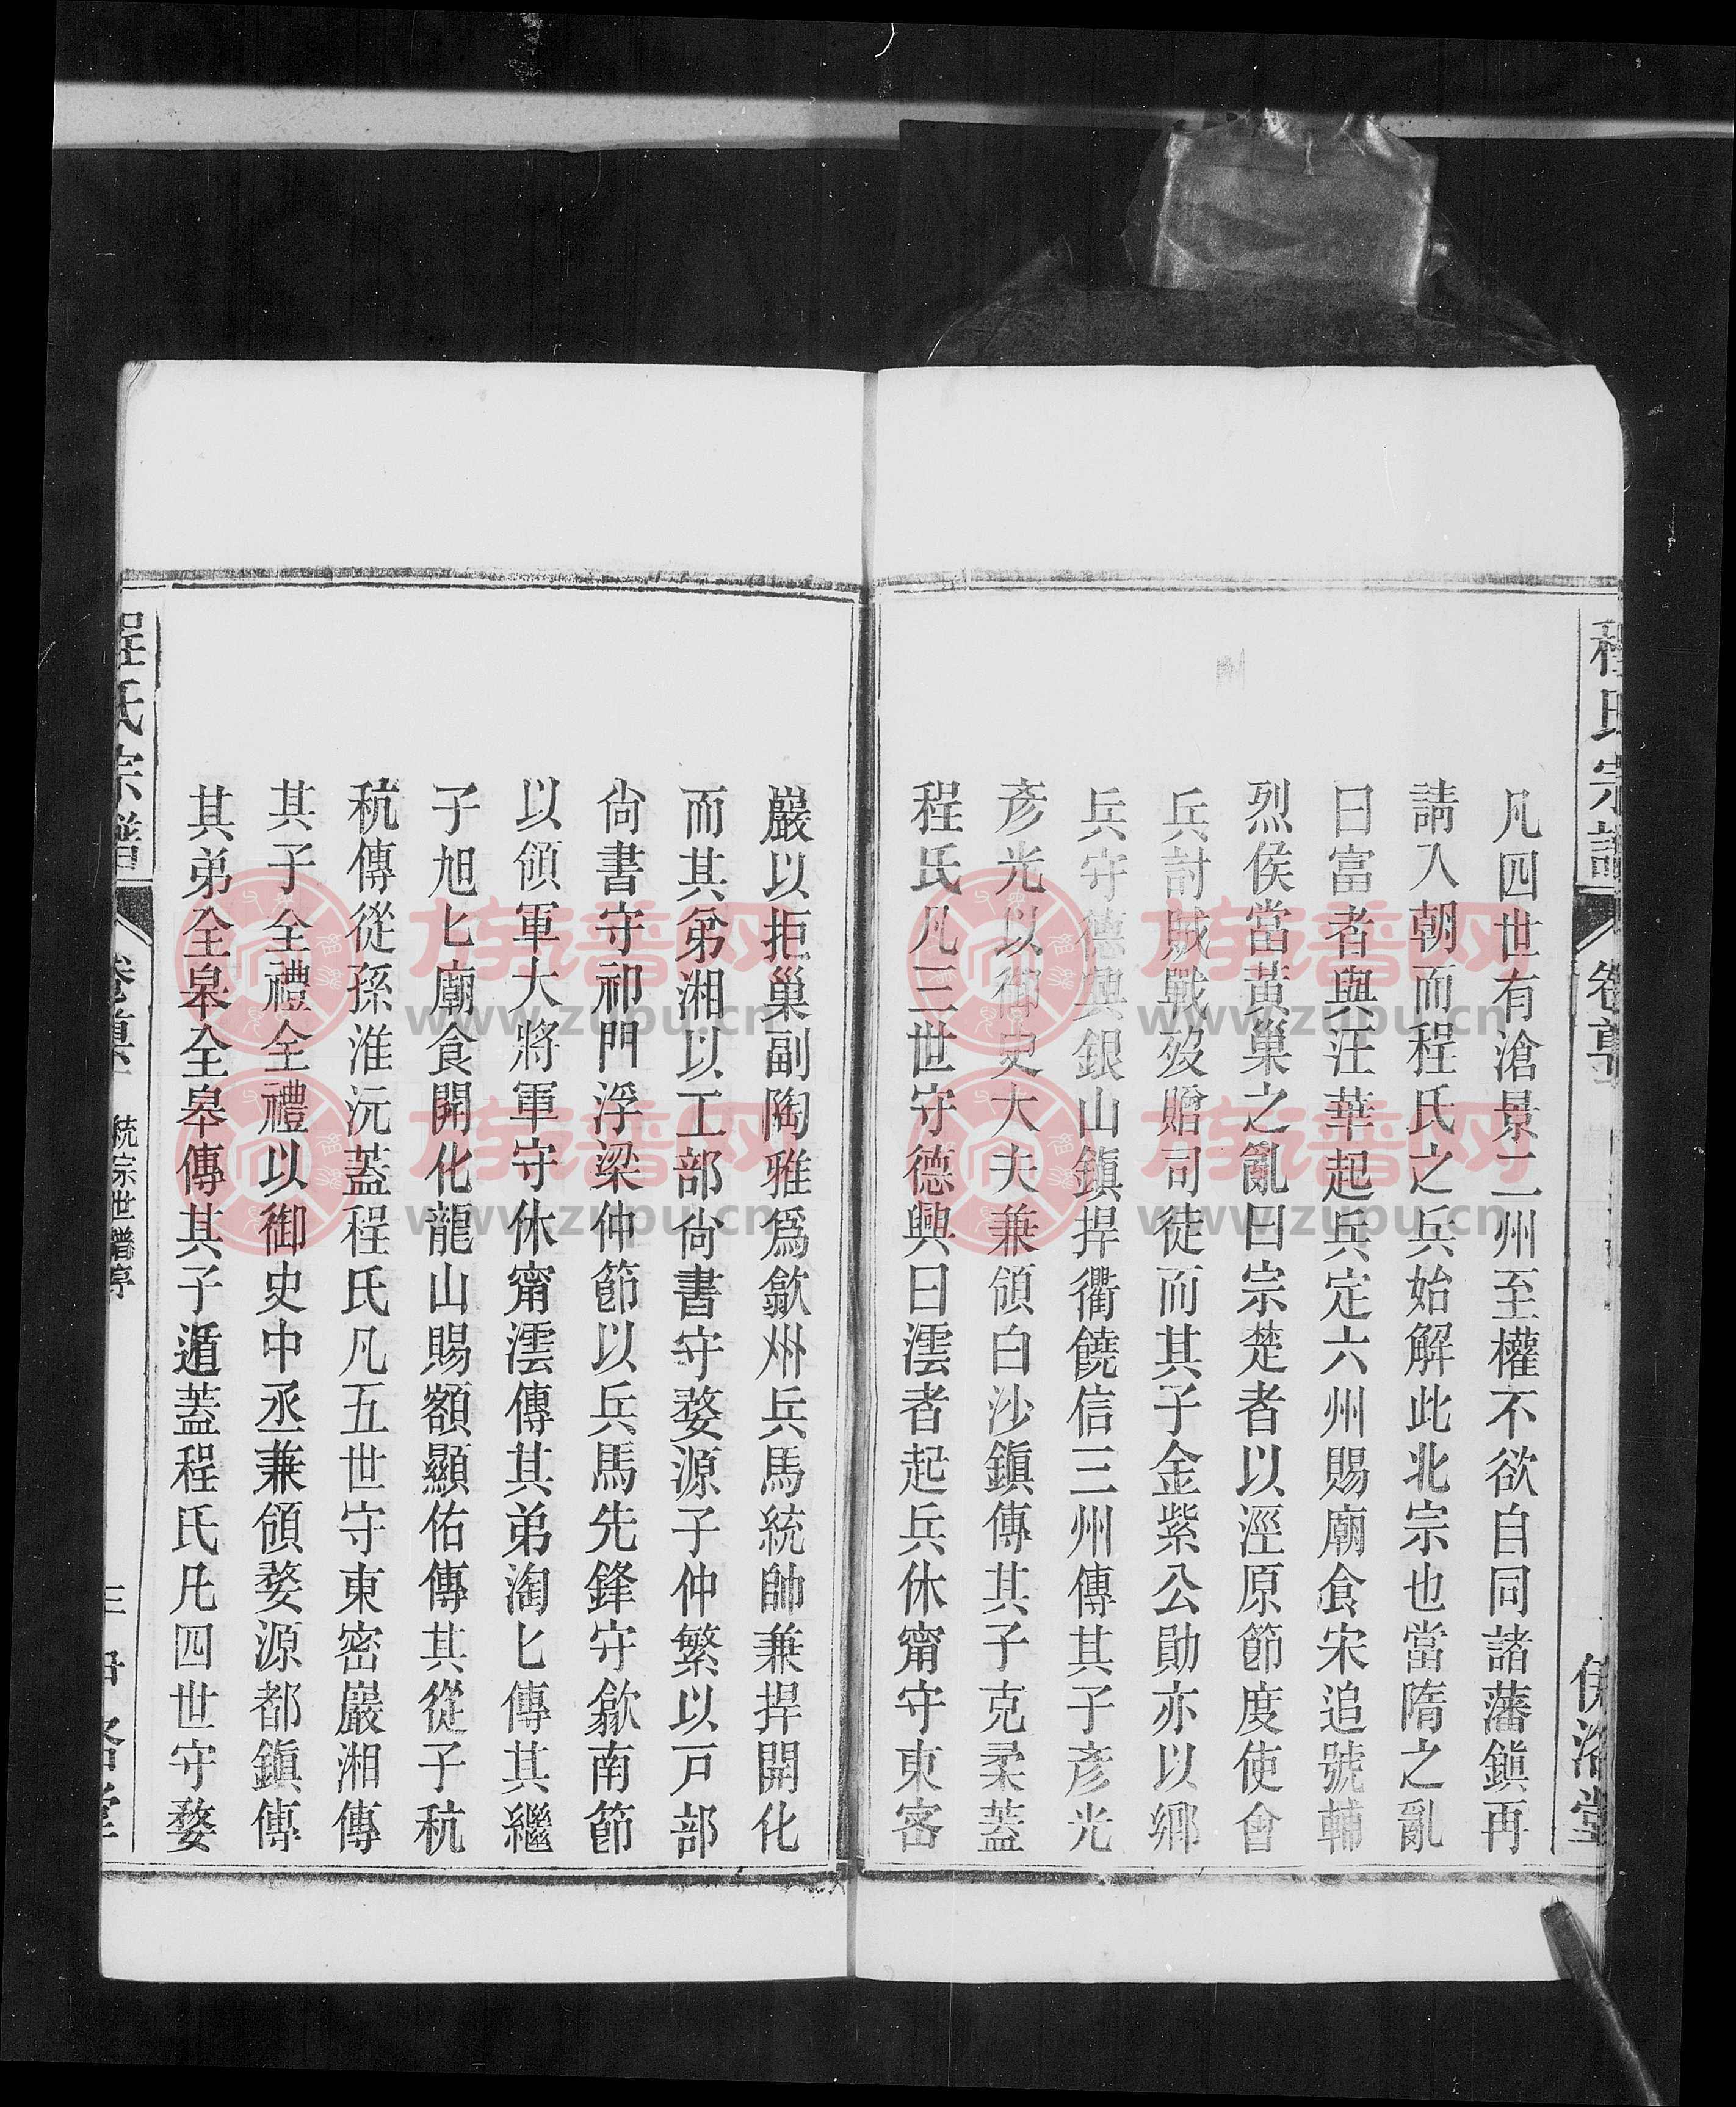 程氏宗譜
卷首
伊洛堂
凡四世有滄景二州至權不欲自同諸藩鎮再
請入朝而程氏之兵始解此北宗也當隋之亂
曰富者與汪華起兵定六州賜廟食宋追號輔
烈侯當黃巢之亂曰宗楚者以涇原節度使會
兵討賊戰歿贈司徒而其子金紫公勛亦以鄉
兵守德興銀山鎮捍衢饒信三州傳其子彥光
彥光以御史大夫兼領白沙鎮傳其子克柔蓋
程氏凡三世守德興曰澐者起兵休甯守東密
巖以拒巢副陶雅爲歙州兵馬統帥兼捍開化
而其弟湘以工部尙書守婺源子仲繁以戸部
尙書守祁門浮梁仲節以兵馬先鋒守歙南節
以領軍大將軍守休甯澐傳其弟淘匕傳其繼
子旭匕廟食開化龍山賜額顯佑傳其從子秔
秔傳從孫淮沅蓋程氏凡五世守東密巖湘傳
其子全禮全禮以御史中丞兼領婺源都鎮傳
其弟全皋全皋傳其子遁蓋程氏凡四世守婺
程氏宗譜
卷首
統宗世譜序
三
伊洛堂
族谱网
www.zupu.cn
族谱网
www.zupu.cn
族谱网
www.zupu.cn
族谱网
www.zupu.cn